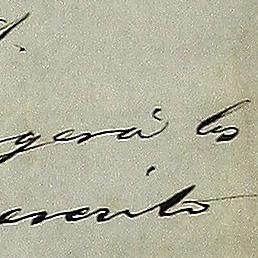 gerá los
escrito